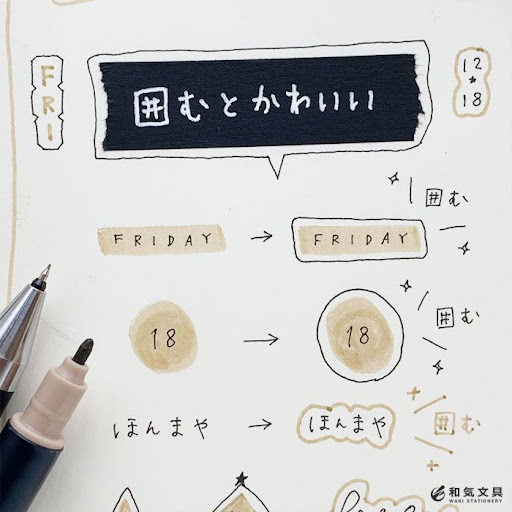 FRI
囲むとかわいい
12
18
FRIDAY → FRIDAY 囲む
18 → 18 囲む
ほんまや → ほんまや 囲む
和気文具
WAKI STATIONERY